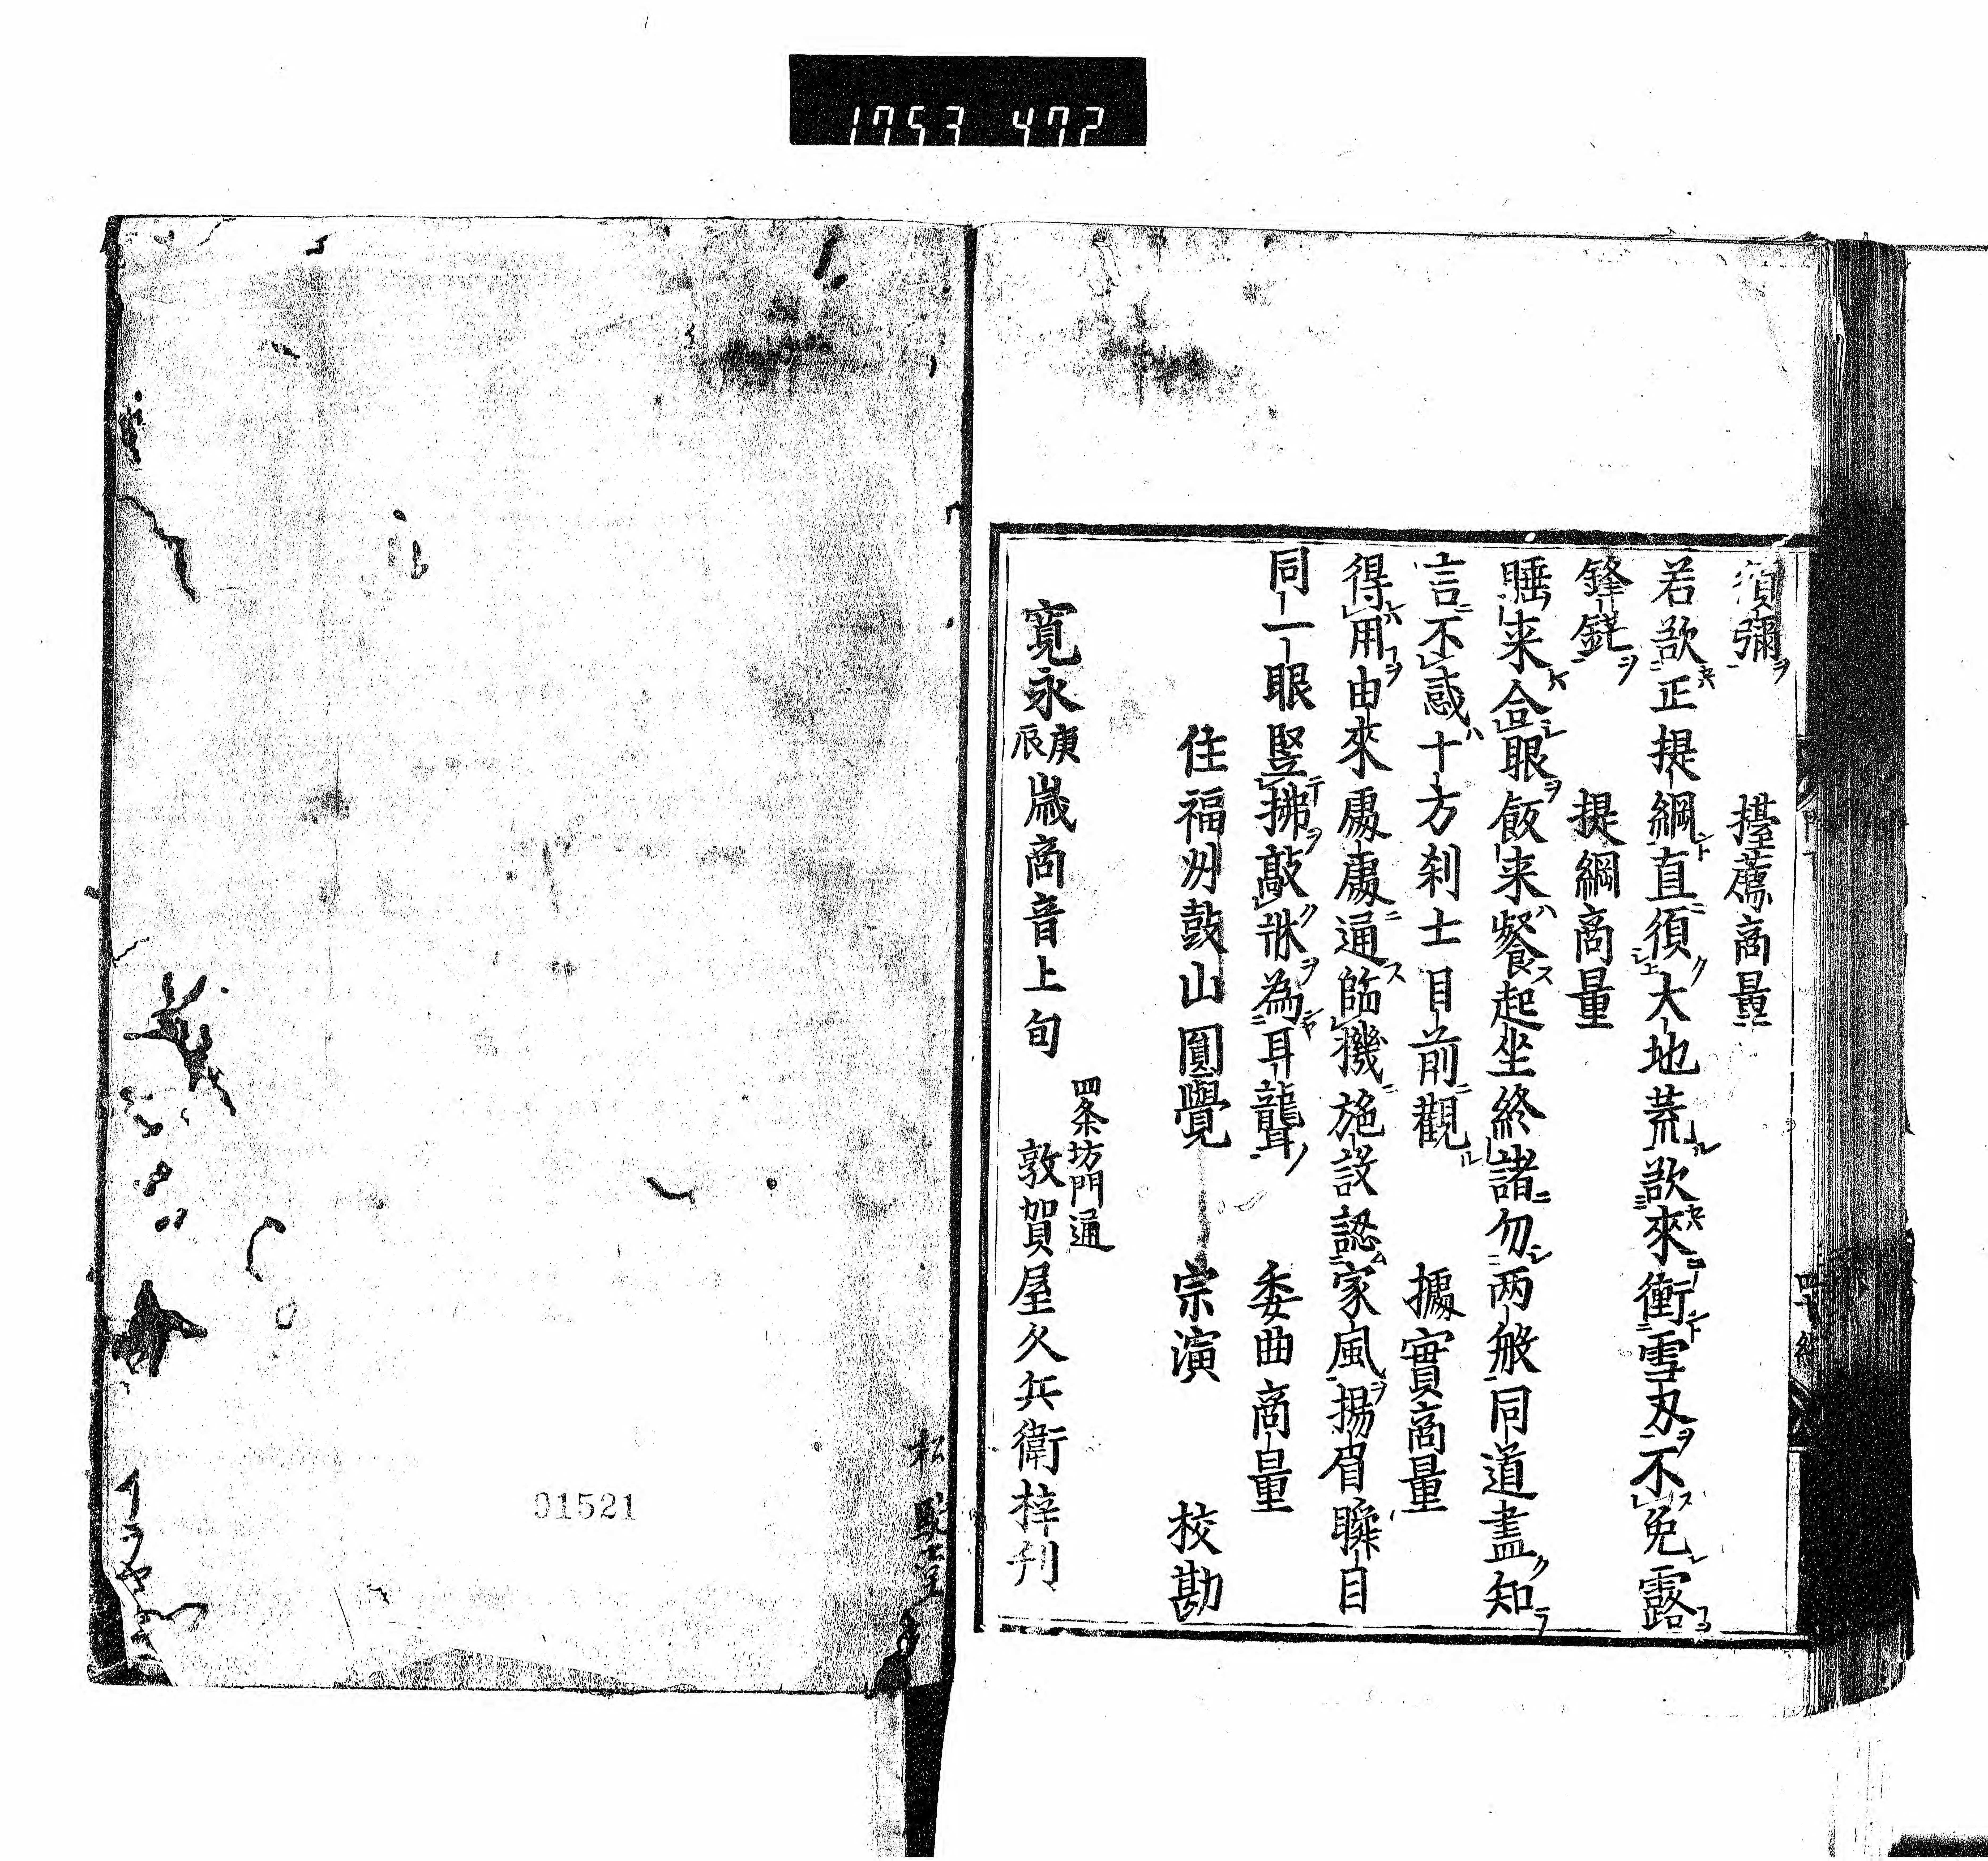 1753 472
須彌 擡薦商量
若欲正提綱直須大地荒欲來衝雪刃不免露
鋒鋩 提綱商量
睡来合眼飯来餐起坐終諸勿两般同道盡知
言不惑十方刹土目前觀 據實商量
得用由來處處通臨機施設認家風揚眉瞬目
同一眼竪拂敲牀為耳聾 委曲商量
住福州鼓山圓覺 宗演 校勘
寛永庚辰歳商音上旬
四条坊門通
敦賀屋久兵衛梓刊
01521